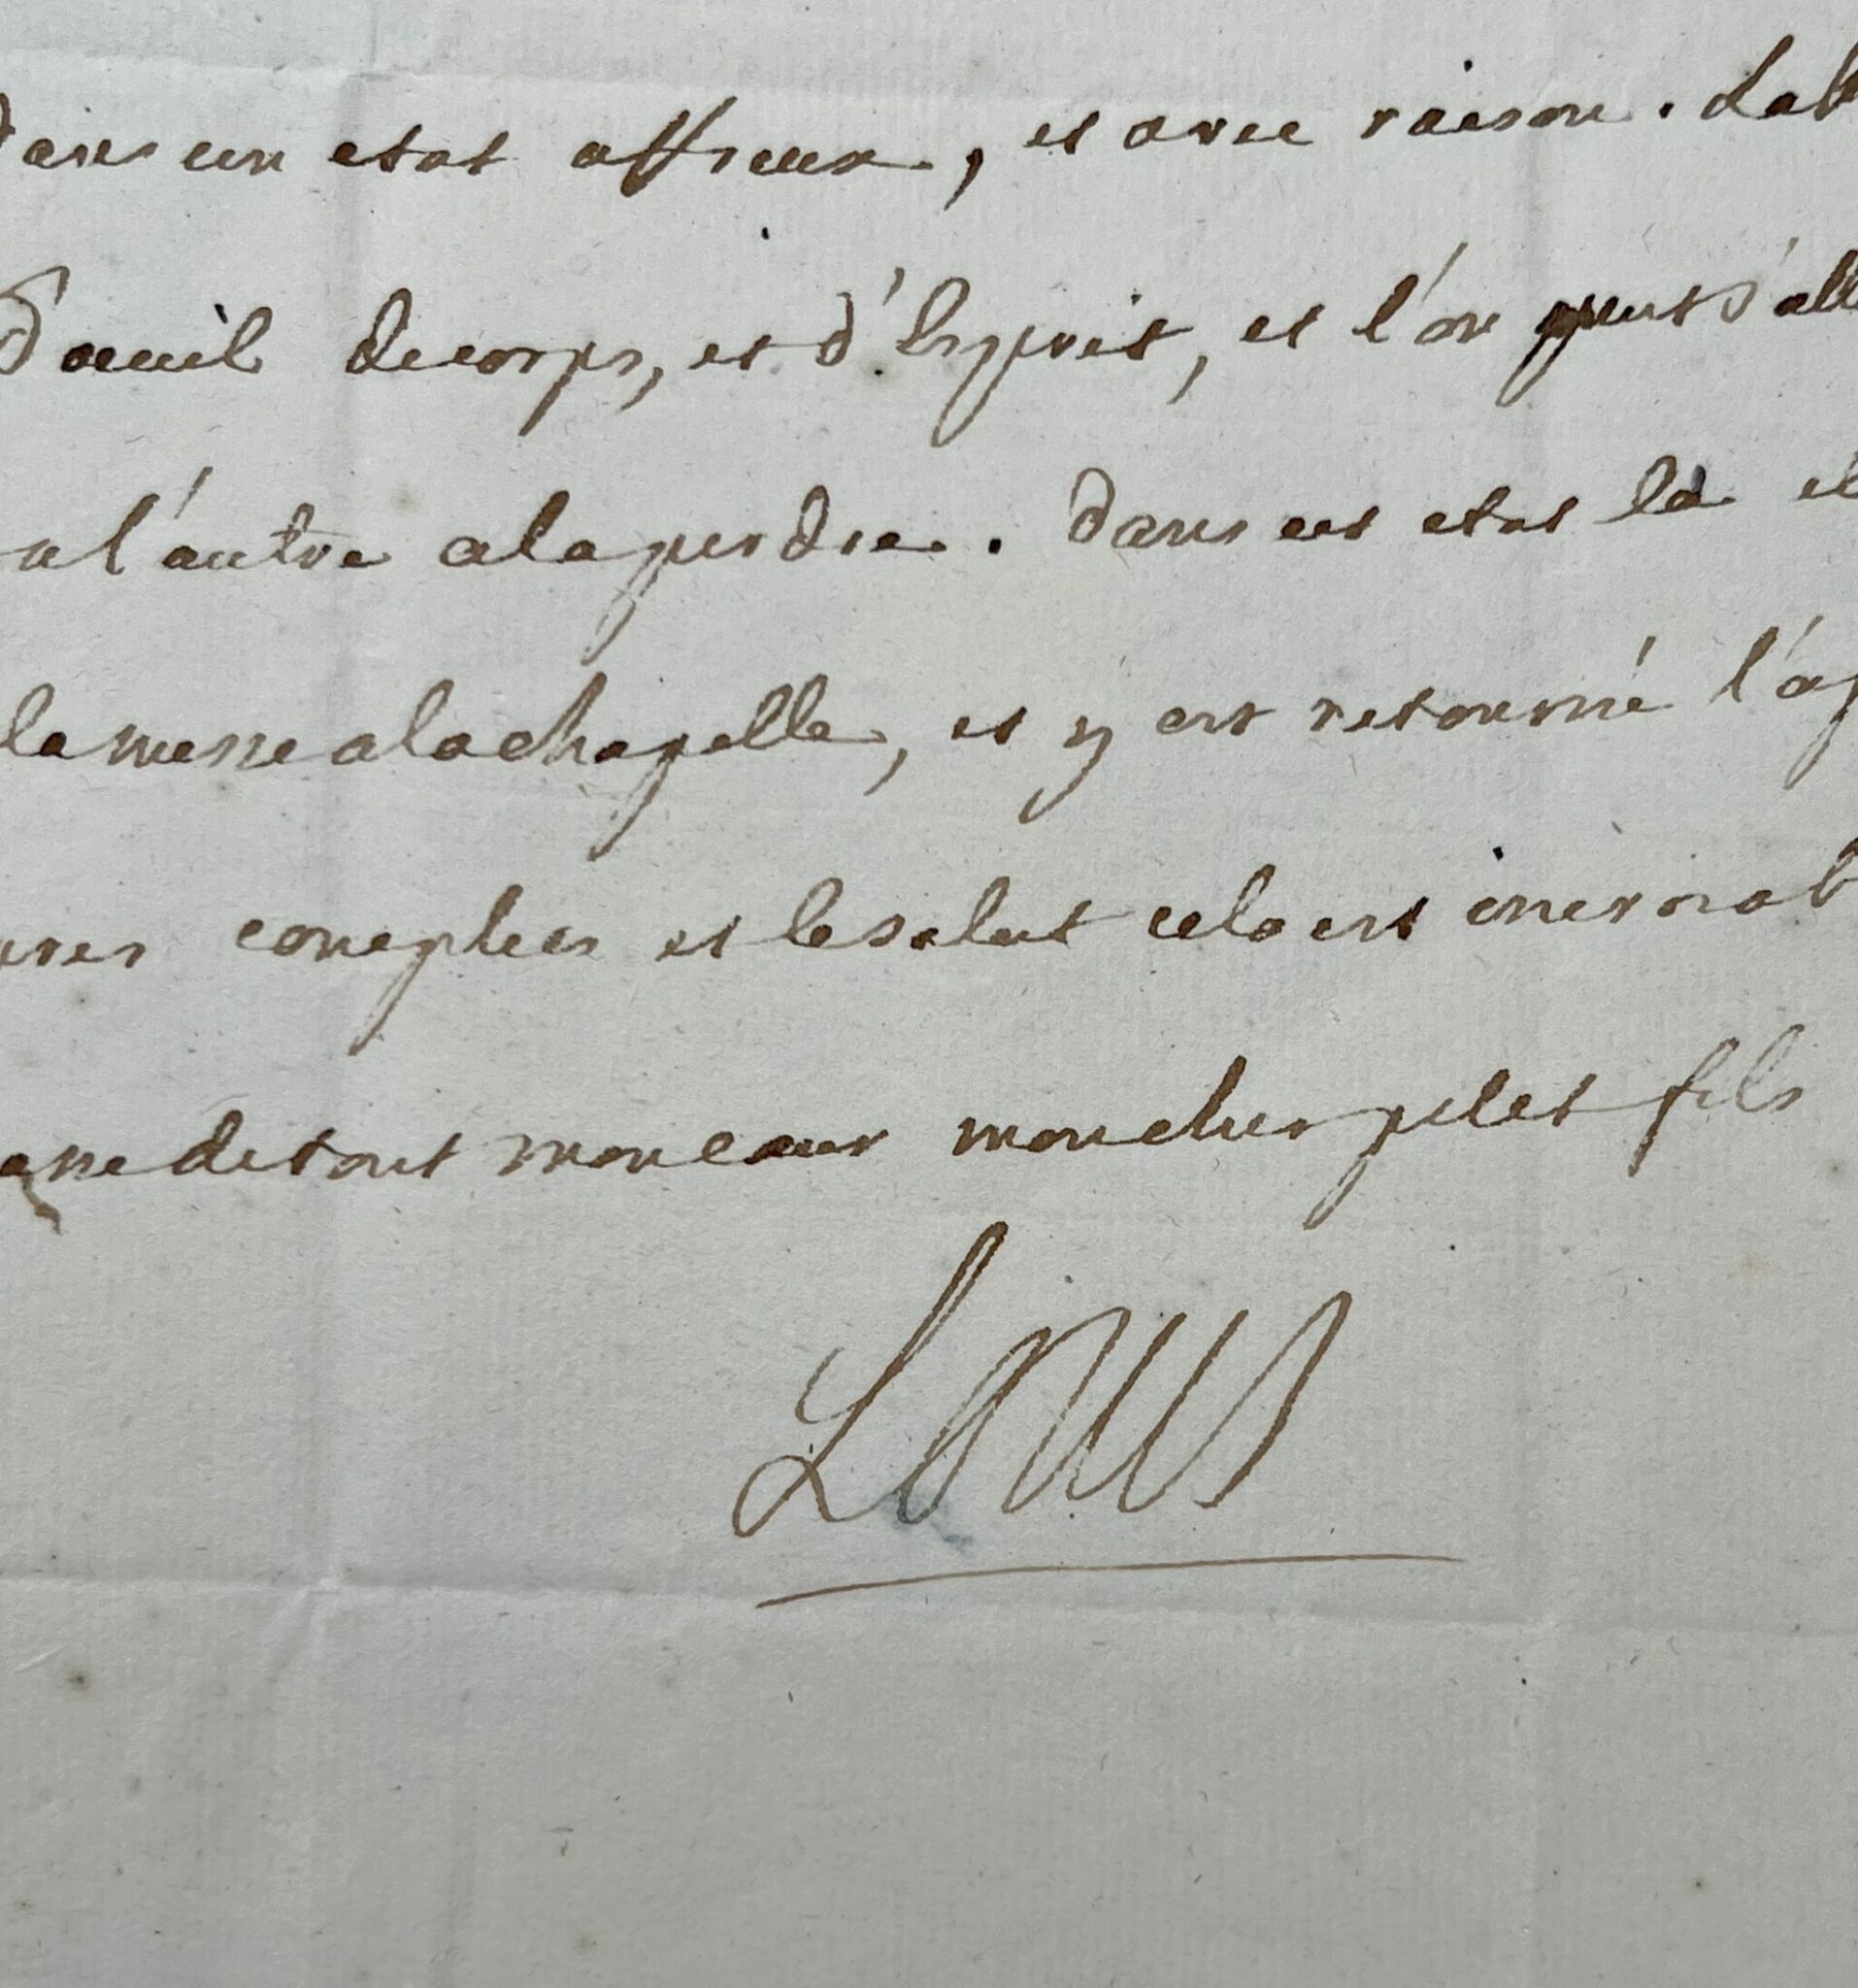 dans un etat affreux, et avec raison. Lab
d'oeuil de corps, et d'Esprit, et l'on peut s'all
l'autre a la perdre. dans cet etat là el
la messe a la chapelle, et y est retourné l'ap
complies et le salut cela est incroiab
de tout mon coeur mon cher petit fils
Louis